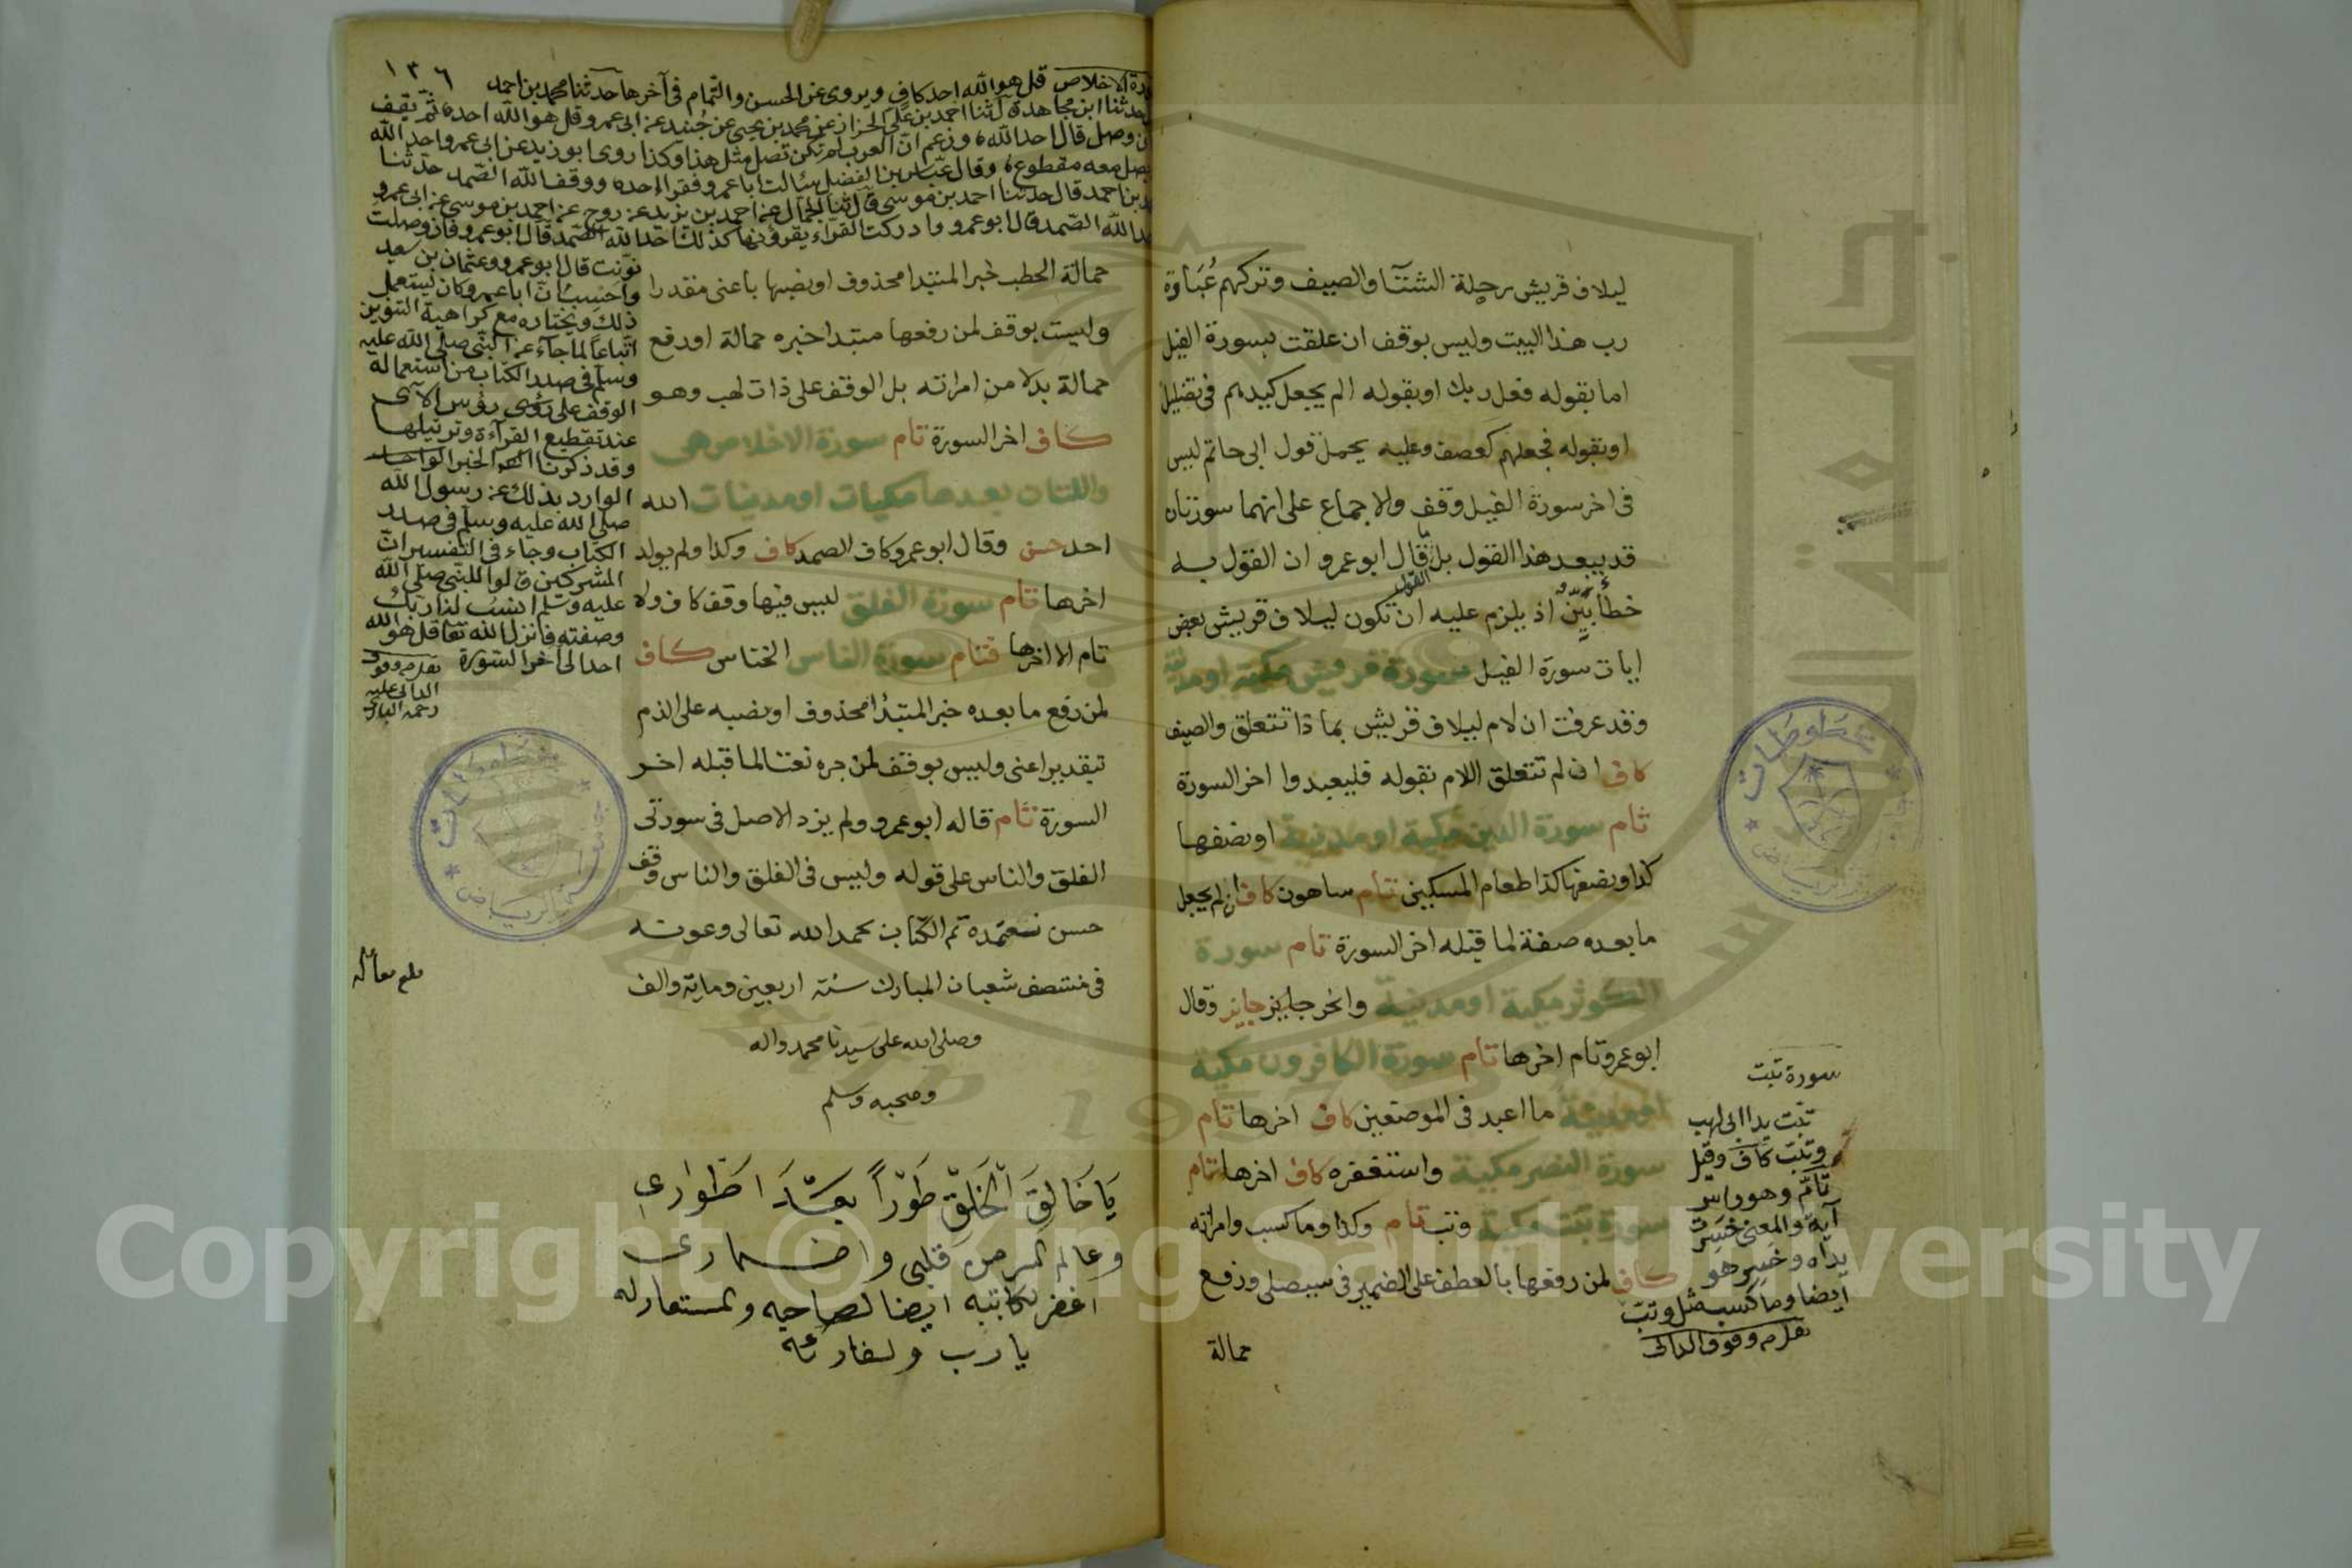 ليلاف قريش رحلة الشتآ والصيف وتركهم عُبَادة
رب هذا البيت وليس بوقف ان علقت بسورة الفيل
اما بقوله فعل ربك او بقوله الم يجعل كيدهم فى تضليل
او بقوله فجعلهم كعصف وعليه يحمل قول ابى حاتم ليس
فى اخر سورة الفيل وقف والاجماع على انهما سورتان
قد يبعد هذا القول بل قال ابو عمرو ان القول به
خطأ بَيّنٌ اذ يلزم عليه ان تكون ليلاف قريش بعض
القول
ايات سورة الفيل سورة قريش مكية او مدنية
وقد عرفت ان لام ليلاف قريش بماذا تتعلق والصيف
كاف ان لم تتعلق اللام بقوله فليعبدوا اخر السورة
تام سورة الدين مكية او مدنية او نصفها
كذا ونصفها كذا طعام المسكين تام ساهون كاف ان لم يجعل
ما بعده صفة لما قبله اخر السورة تام سورة
الكوثر مكية او مدنية وانحر جايز جايز وقال
ابو عمرو تام اخرها تام سورة الكافرون مكية
او مدنية ما اعبد فى الموضعين كاف اخرها تام
سورة النصر مكية واستغفره كاف اخرها تام
سورة تبت مكية وتب تام وكذا وما كسب وامراته
كاف لمن رفعها بالعطف على الضمير فى سيصلى ورفع
حمالة
سورة تبت
تبّت يدا ابى لهب
وتبّت كاف وقيل
تامّ وهو راس
آية والمعنى خسِرت
يداه وخسِر هو
ايضا وما كسب مثل وتبّ
وقوف الدانى
١٣٦
الاخلاص قل هو الله احد كاف ويروى عن الحسن والتمام فى آخرها حدثنا محمد بن احمد
حدثنا ابن مجاهد ثنا احمد بن على الخزاز عن محمد بن يحيى عن عبيد عن ابى عمرو قل هو الله احد ثم يقف
وصل قال احد الله وزعم ان العرب لم تكن تصل مثل هذا وكذا روى ابو زيد عن ابى عمرو احد الله
مقطوع وقال عبّاس بن الفضل سئالت ابا عمرو فقرا احد ووقف الله الصّمد حدّثنا
بن احمد قال حدثنا احمد بن موسى قال ثنا الجمال عن احمد بن يزيد عن روح عن احمد بن موسى عن ابى عمرو
الله الصّمد قال ابو عمرو وادركت القرّاء يقرؤنها كذلك احد الله الصّمد قال ابو عمرو فان وصلت
نوّنت قال ابو عمرو وعثمان بن سعيد
واحسِبُ انّ ابا عمرو كان يستعمل
ذلك ويختاره مع كراهية التنوين
اتّباعاً لما جآء عن النّبى صلّى الله عليه
وسلّم فى صدر الكتاب من استعماله
الوقف على رؤس الآى
عند تقطيع القرآءة وترتيلها
وقد ذكرنا الخبر
الوارد بذلك عن رسول الله
صلى الله عليه وسلّم فى صدر
الكتاب وجاء فى التفسير انّ
المشركين قالوا للنّبى صلى الله
عليه وسلّم انسُب لنا ربّك
وصفته فانزل الله تعا قل هو الله
احد الى آخر السّورة
وقوف
الدانى عليه
رحمة البارى
حمالة الحطب خبر المبتدا محذوف او نصبها باعنى مقدرا
وليست بوقف لمن رفعها مبتدا خبره حمالة او رفع
حمالة بدلا من امراته بل الوقف على ذات لهب وهو
كاف اخر السورة تام سورة الاخلاص هى
واللتان بعدها مكيات او مدنيات الله
احد حسن وقال ابو عمرو كاف الصمد كاف وكذا ولم يولد
اخرها تام سورة الفلق ليس فيها وقف كاف ولا
تام الا اخرها فتام سورة الناس الخناس كاف
لمن رفع ما بعده خبر المبتدُا محذوف او نصبه على الذم
بتقدير اعنى وليس بوقف لمن جره نعتا لما قبله اخر
السورة تام قاله ابو عمرو ولم يزد الاصل فى سورتى
الفلق والناس على قوله وليس فى الفلق والناس وقف
حسن نتعمده تم الكتاب بحمد الله تعالى وعونه
فى منتصف شعبان المبارك سنة اربعين وماية والف
وصلى الله على سيدنا محمد واله
وصحبه وسلم
يَا خَالِقَ الْخَلْقِ طَوْراً بَعْدَ اَطْوَارى
وعالم السر من قلبى واضمارى
اغفر لكاتبه ايضا لصاحبه والمستعار له
يا رب ولقارئه
Copyright © King Saud University